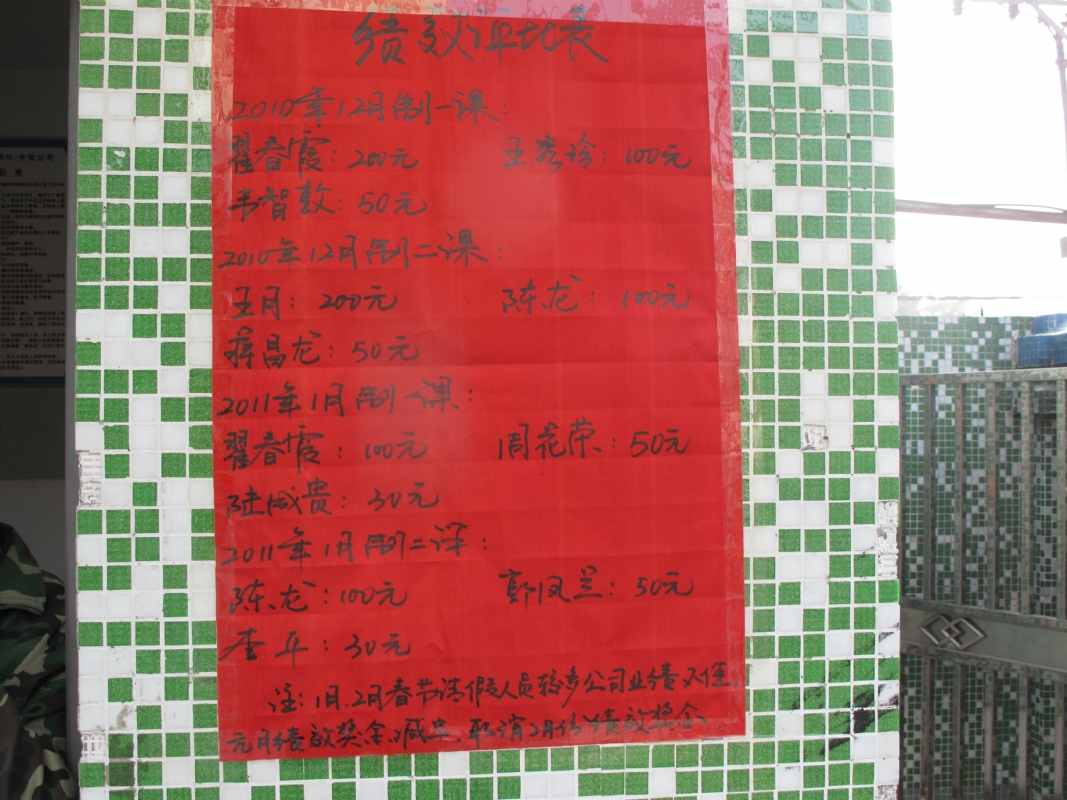 绩效评比表
2010年12月制一课：
翟春霞：200元 王秀珍：100元
韦智敦：50元
2010年12月制二课：
王月：200元 陈龙：100元
蒋昌龙：50元
2011年1月制一课：
翟春霞：100元 周花荣：50元
陆咸贵：30元
2011年1月制二课：
陈龙：100元 郭凤兰：50元
李平：30元
注：1月、2月春节请假人员较多公司业绩不佳
元月绩效奖金减半，取消2月份绩效奖金